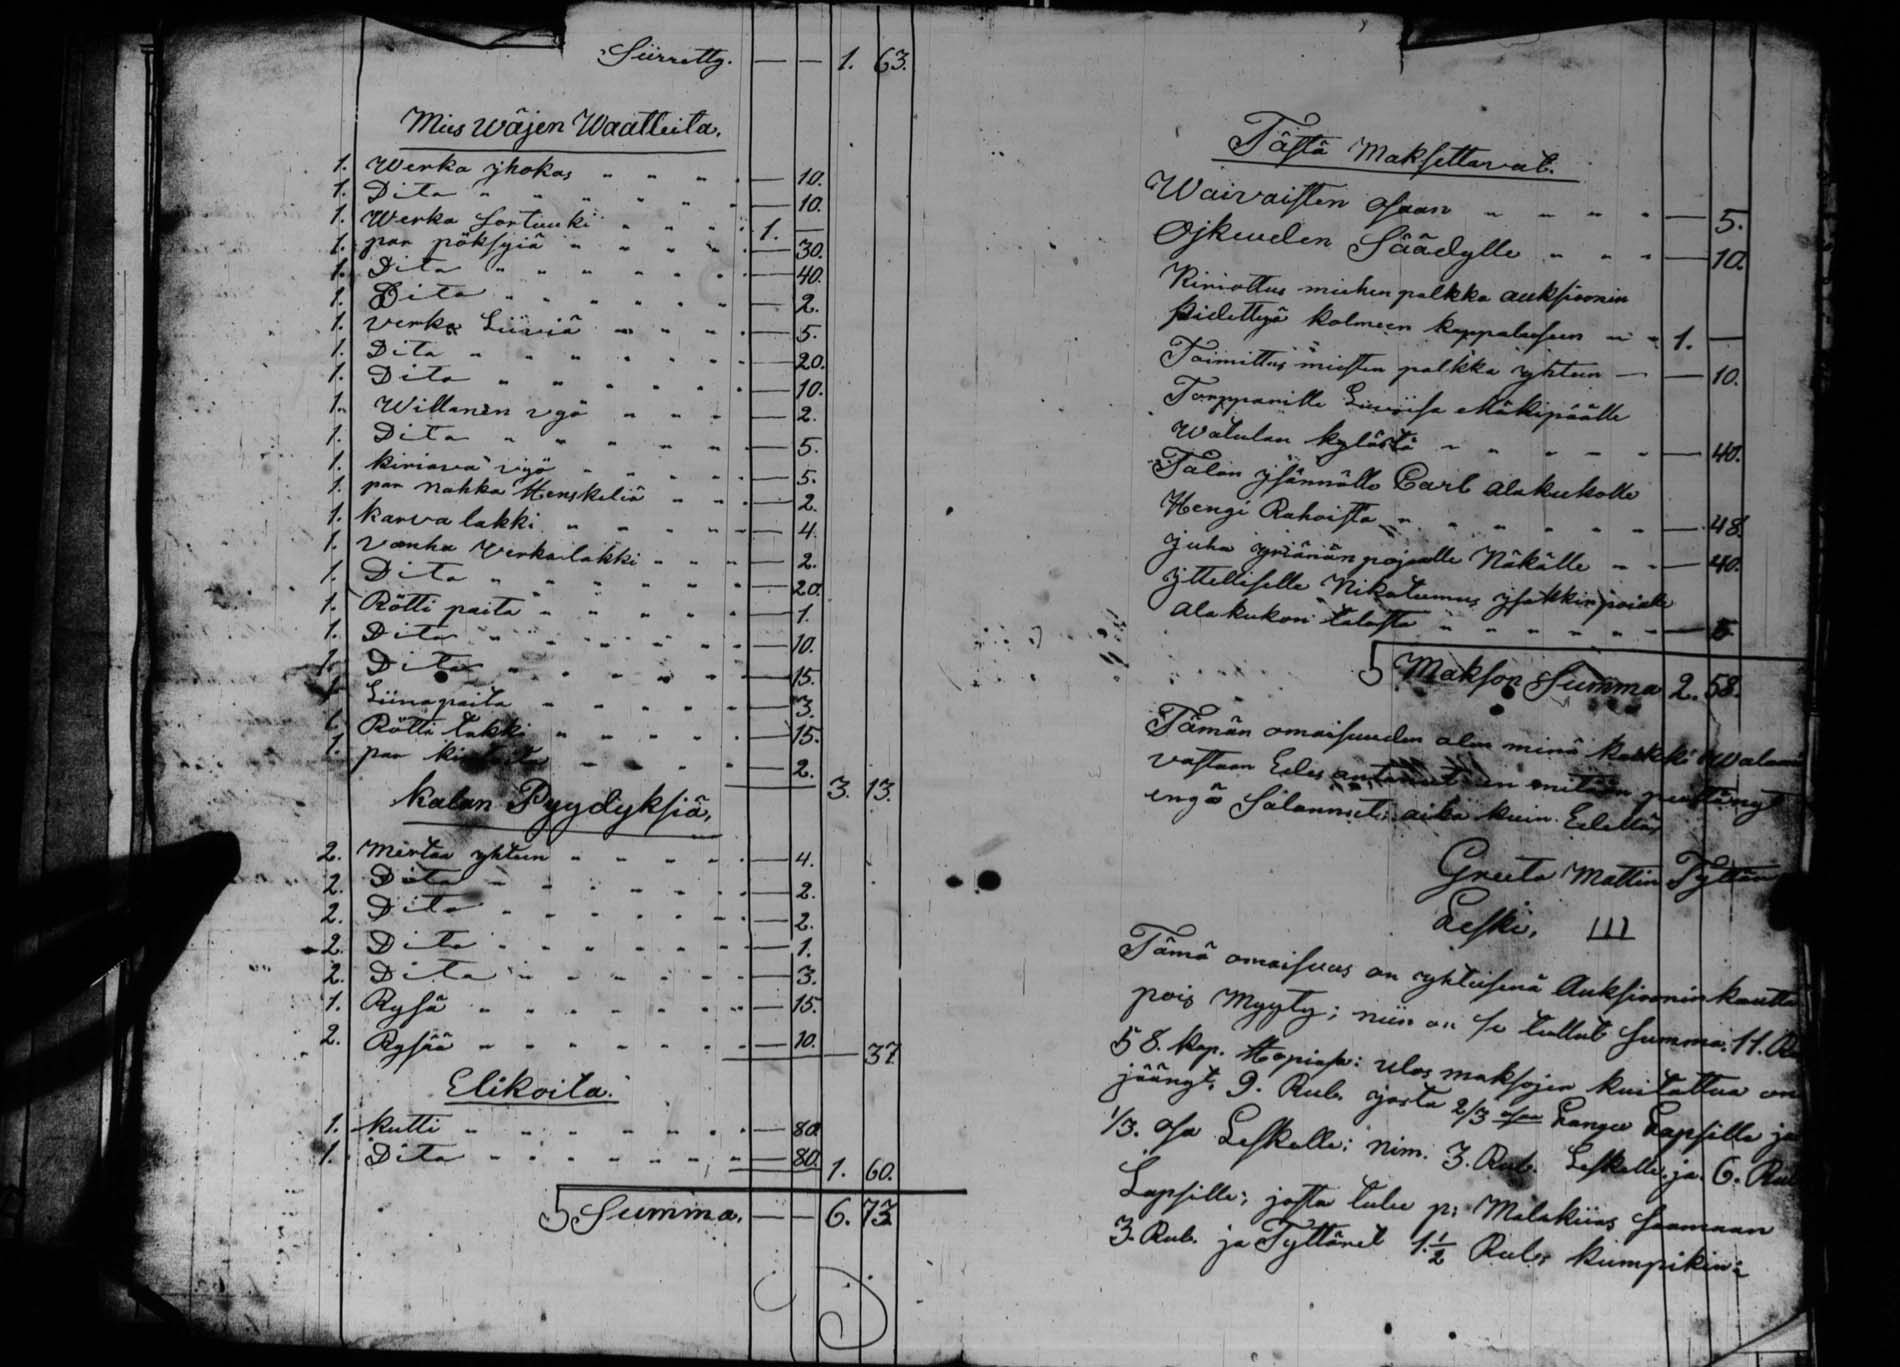 Siirretty. — — 1. 63.
Mies wäjen Waatteita.
1. Werka yhokas " " " — 10.
1. Dita " " " " " — 10.
1. Werka sortuuki " " " 1. —
1. par pöksyiä " " " " — 30.
1. Dita " " " " " — 40.
1. Dita " " " " " — 2.
1. verka Liiviä " " " — 5.
1. Dita " " " " " — 20.
1. Dita " " " " " — 10.
1. Willanen vyö " " " — 2.
1. Dita " " " " " — 5.
1. kiriava vyö " " " " — 5.
1. par nahka Henskeliä " " — 2.
1. karva lakki " " " " — 4.
1. vanha Verka lakki " " " — 2.
1. Dita " " " " " — 20.
1. Rötti paita " " " " — 1.
1. Dita " " " " " — 10.
1. Dita " " " " " — 15.
1. Liinapaita " " " " — 3.
1. Rötti takki " " " " — 15.
1. par " " " — 2. 3. 13.
Kalan Pyydyksiä.
2. Mertaa yhteen " " " " — 4.
2. Dita " " " " " — 2.
2. Dita " " " " " — 2.
2. Dita " " " " " — 1.
2. Dita " " " " " — 3.
1. Rysä " " " " " — 15.
2. Rysiä " " " " " — 10. — 37.
Elikoita.
1. kutti " " " " " — 80.
1. Dita " " " " " — 80. 1. 60.
Summa. — — 6. 73.
Tästä Maksettavat.
Waivaisten osaan " " " " — 5.
Ojkeuden Säädylle " " " — 10.
Kiriottus miehen palkka auksioonin
pidettyä kolmeen kappaleseen " " 1. —
Toimittus miesten palkka yhteen — — 10.
Torpparille Mäkipäälle
Watulan kylästä " " " " — 40.
Talon ysännälle Carl Alakukolle
Hengi Rahoista " " " " " — 48.
Juha yriänän pojalle Näkälle " " — 40.
yttelliselle Nikotemus ysakkin poialle
Alakukon talosta " " " " " — 5.
Makson Summa 2. 58.
Tämän omaisuuden olen minä kaikki
vastaan Edes antanut en mitään
engä Salannut; aika kuin Edellä
Greeta Mattin Tyttär
Leski. III
Tämä omaisuus on yhteisenä Auksioonin kautta
pois Myyty; niin on se tullut Summa; 11. Ru
58. kop. Hopiasa: ulos maksojen kuitattua on
jäänyt. 9. Rub. josta 2/3 osaa Lange Lapsille ja
1/3. osa Leskelle: nim. 3. Rub. Leskelle ja 6. Rub
Lapsille; josta tulee p: Malakiias saamaan
3. Rub. ja Tyttäret 1.½ Rub: kumpikin: